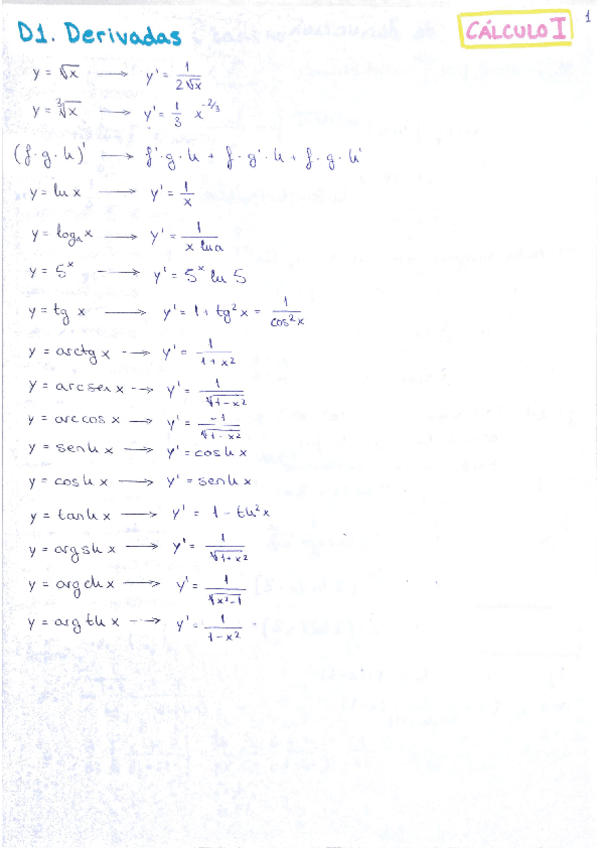 D1. Derivadas
CÁLCULO I
1
y = √x → y' = 1/(2√x)
y = ∛x → y' = 1/3 x^(-2/3)
(f·g·h)' → f'·g·h + f·g'·h + f·g·h'
y = ln x → y' = 1/x
y = logₐ x → y' = 1/(x ln a)
y = 5^x → y' = 5^x ln 5
y = tg x → y' = 1 + tg²x = 1/cos²x
y = arctg x → y' = 1/(1+x²)
y = arcsen x → y' = 1/√(1-x²)
y = arccos x → y' = -1/√(1-x²)
y = senh x → y' = cosh x
y = cosh x → y' = senh x
y = tanh x → y' = 1 - th²x
y = argsh x → y' = 1/√(1+x²)
y = argch x → y' = 1/√(x²-1)
y = argth x → y' = 1/(1-x²)